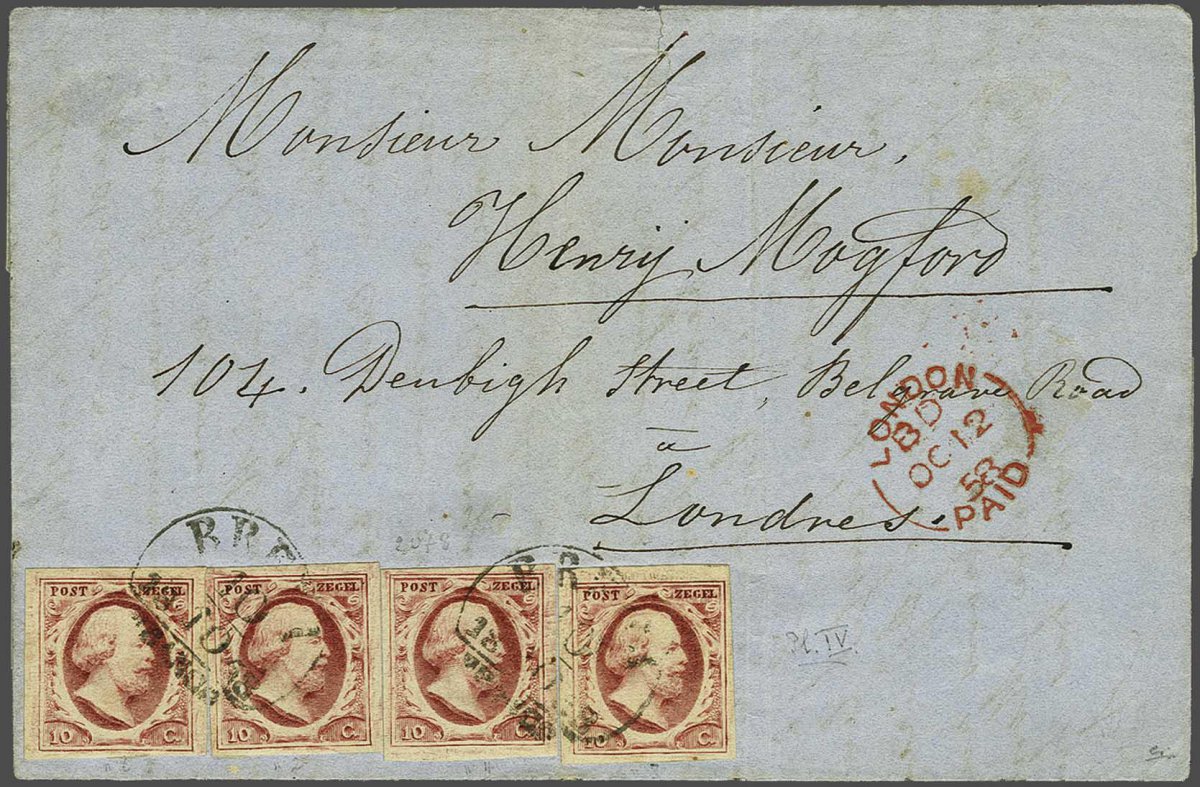 Monsieur Monsieur,
Henry Mogford
104. Denbigh Street, Belgrave Road
à
Londres.
LONDON
BD
OC 12
58
PAID
BRE
2078
BRE
POST ZEGEL
POST ZEGEL
POST ZEGEL
POST ZEGEL
10 C.
10 C.
10 C.
10 C.
Pl. IV.